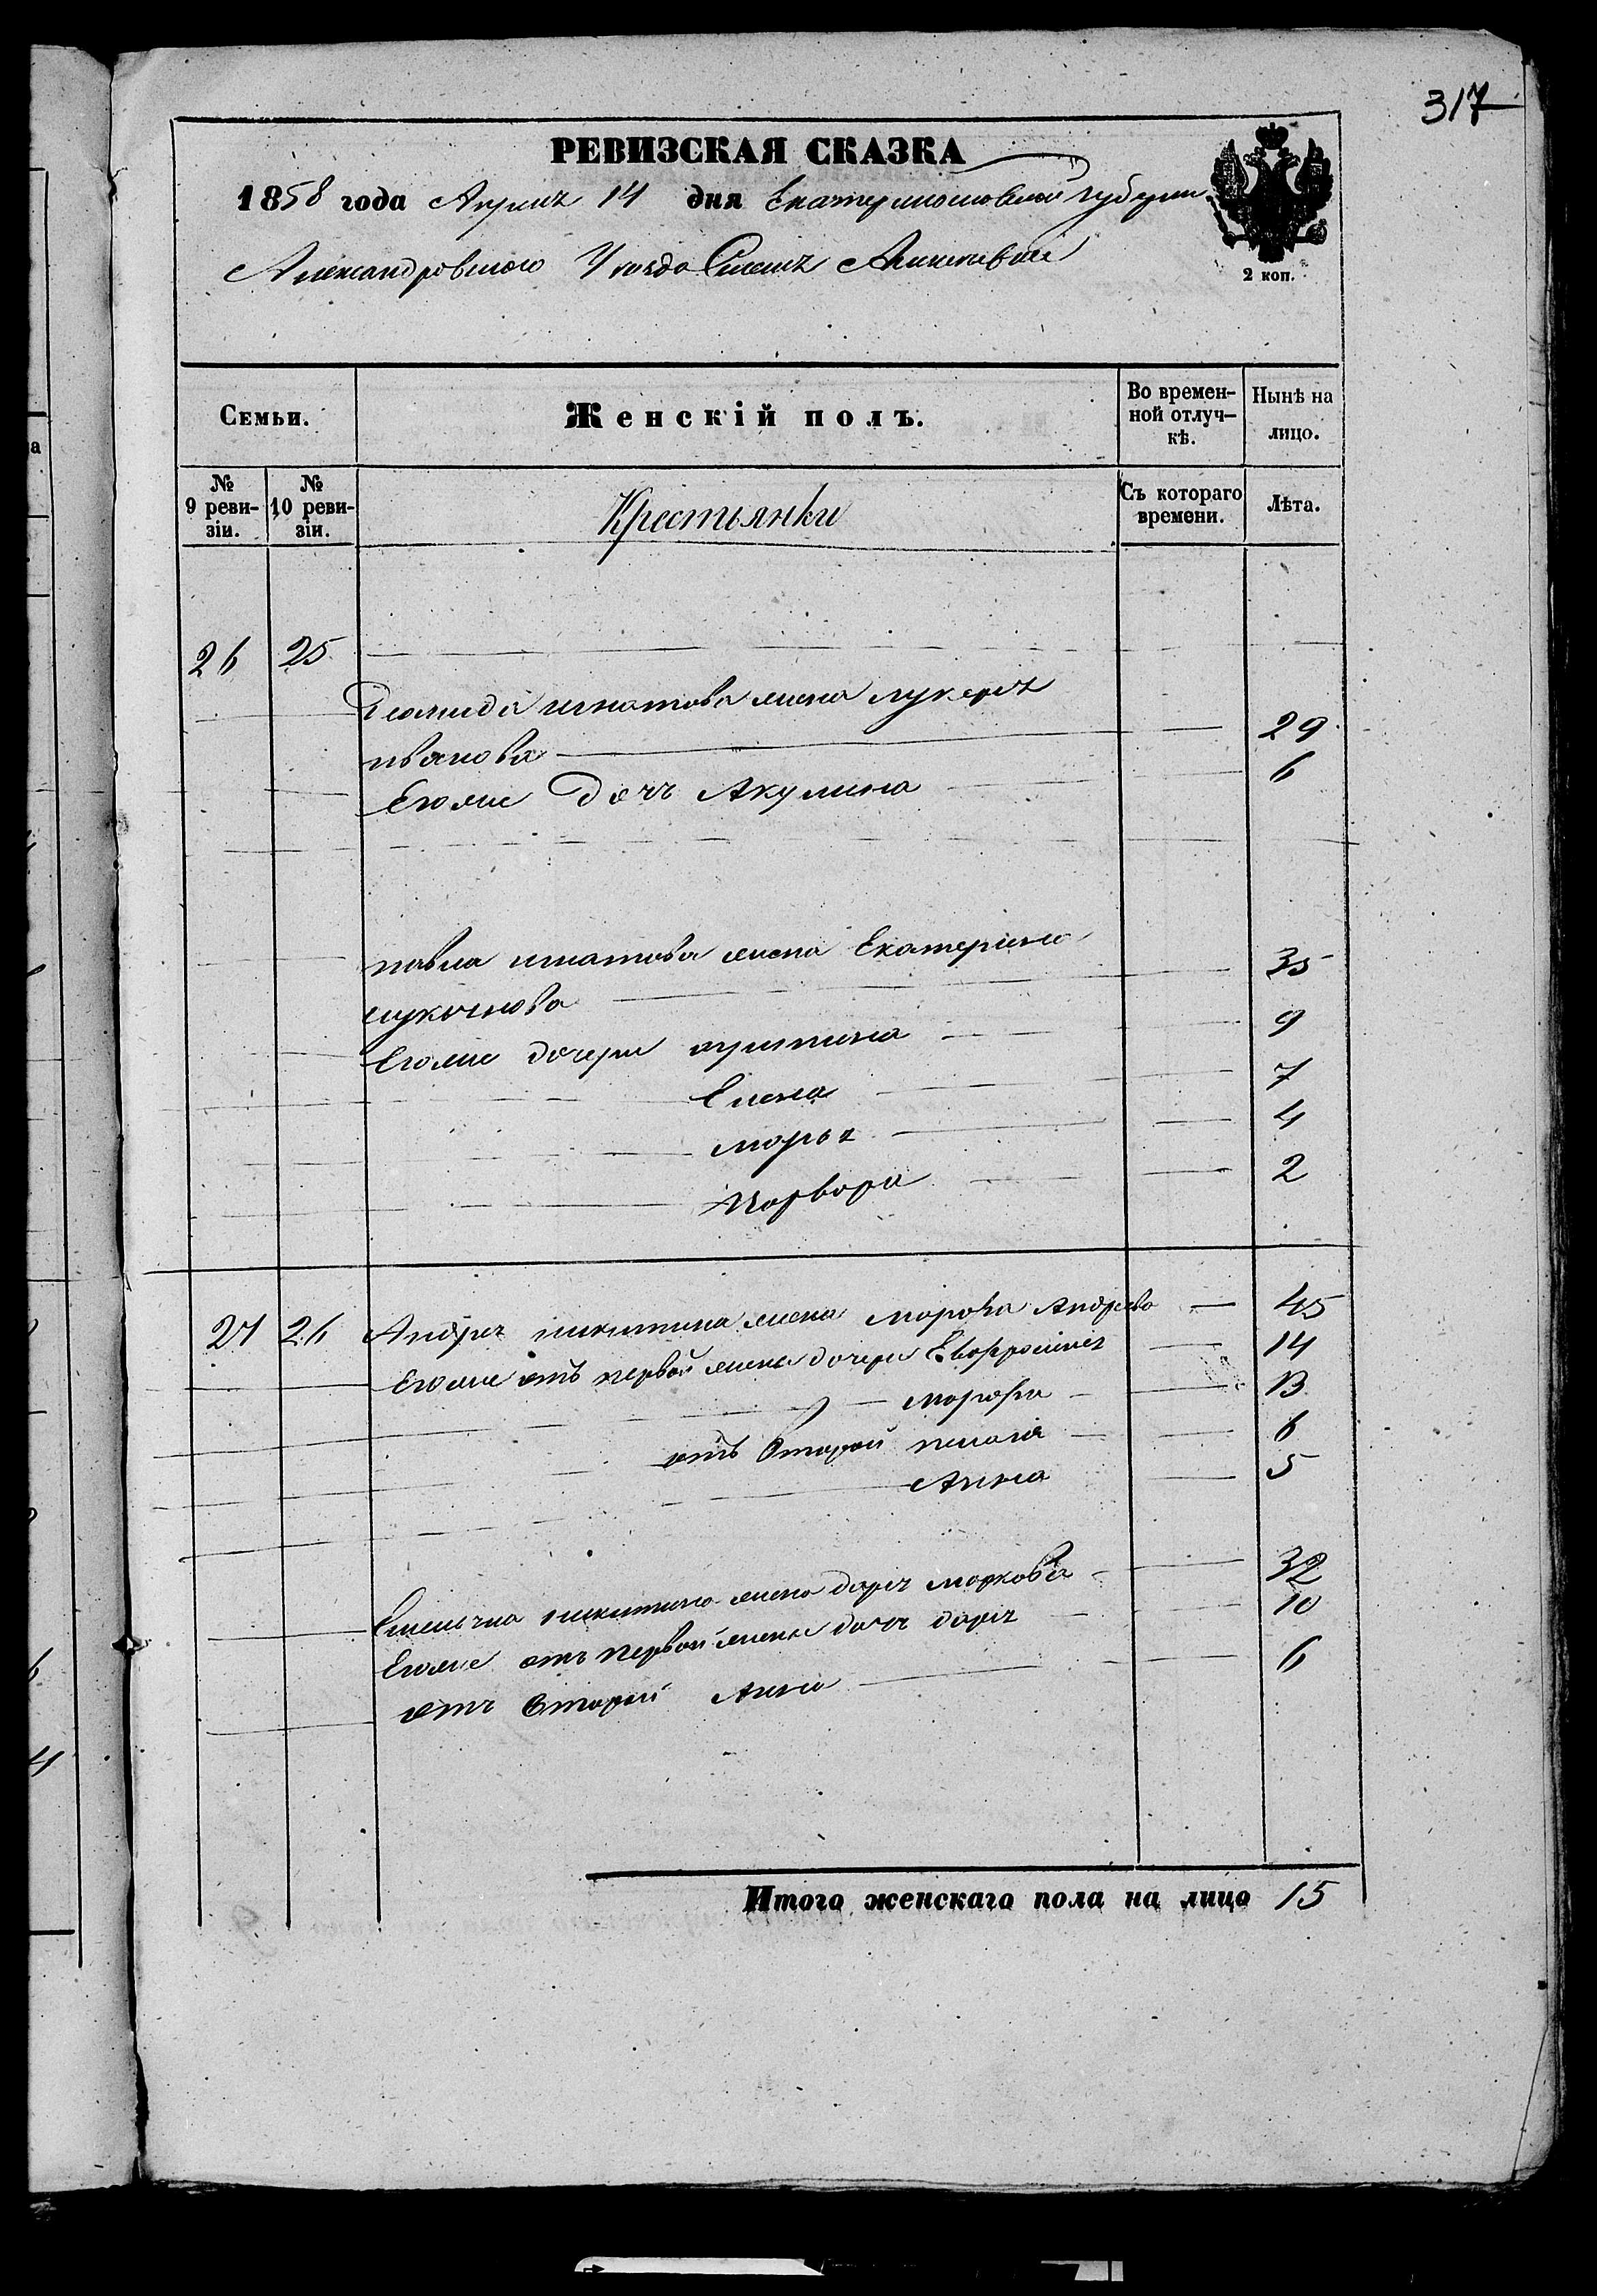 317
РЕВИЗСКАЯ СКАЗКА
1858 года Апреля 14 дня Екатеринославской губернии
Александровского Уезда Села
2 коп.
Семьи.
Женскій полъ.
Во времен-
ной отлуч-
кѣ.
Нынѣ на
лицо.
№
9 реви-
зіи.
№
10 реви-
зіи.
Крестьянки
Съ котораго
времени.
Лѣта.
26 25
игнатова жена лукерья
иванова 29
Егоже дочь Акулина 6
павла игнатова жена Екатерина
35
Егоже дочери 9
Елена 7
марья 4
варвара 2
27 26 Андрея никитина жена марфа Андреева 45
Егоже отъ первой жены дочери Евфросинья 14
марфа 13
отъ второй 6
Анна 5
никитина жена дарья маркова 32
Егоже отъ первой жены дочь дарья 10
отъ второй Анна 6
Итого женскаго пола на лицо 15